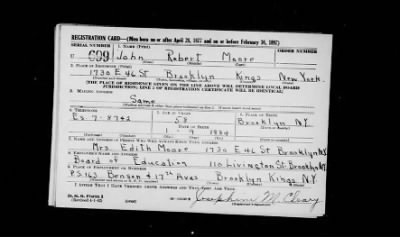 REGISTRATION CARD—(Men born on or after April 28, 1877 and on or before February 16, 1897)
SERIAL NUMBER 1. NAME (Print) ORDER NUMBER
U 609 John Robert Moore
(First) (Middle) (Last)
2. PLACE OF RESIDENCE (Print)
1730 E 46 St Brooklyn Kings New York
[THE PLACE OF RESIDENCE GIVEN ON THE LINE ABOVE WILL DETERMINE LOCAL BOARD
JURISDICTION; LINE 2 OF REGISTRATION CERTIFICATE WILL BE IDENTICAL]
3. MAILING ADDRESS
Same
4. TELEPHONE 5. AGE IN YEARS 6. PLACE OF BIRTH
Es. 7-8742 58 Brooklyn
DATE OF BIRTH
1 9 1884 N.Y.
7. NAME AND ADDRESS OF PERSON WHO WILL ALWAYS KNOW YOUR ADDRESS
Mrs. Edith Moore 1730 E 46 St Brooklyn N.Y.
8. EMPLOYER'S NAME AND ADDRESS
Board of Education 110 Livingston St Brooklyn N.Y.
9. PLACE OF EMPLOYMENT OR BUSINESS
P.S. 163 Benson & 17th Aves Brooklyn Kings N.Y.
I AFFIRM THAT I HAVE VERIFIED ABOVE ANSWERS AND THAT THEY ARE TRUE.
D. S. S. Form 1